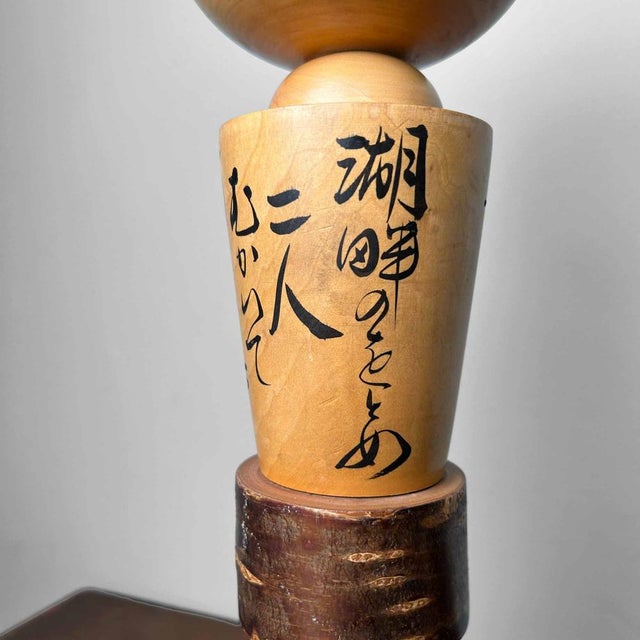 湖畔のをとめ
二人
むかいて